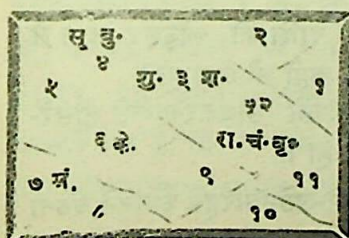 सू बु॰ २
४
शु॰ ३ श॰
५ १
१२
६ के॰ रा॰ चं॰ बृ॰
७ मं. ९ ११
८ १०